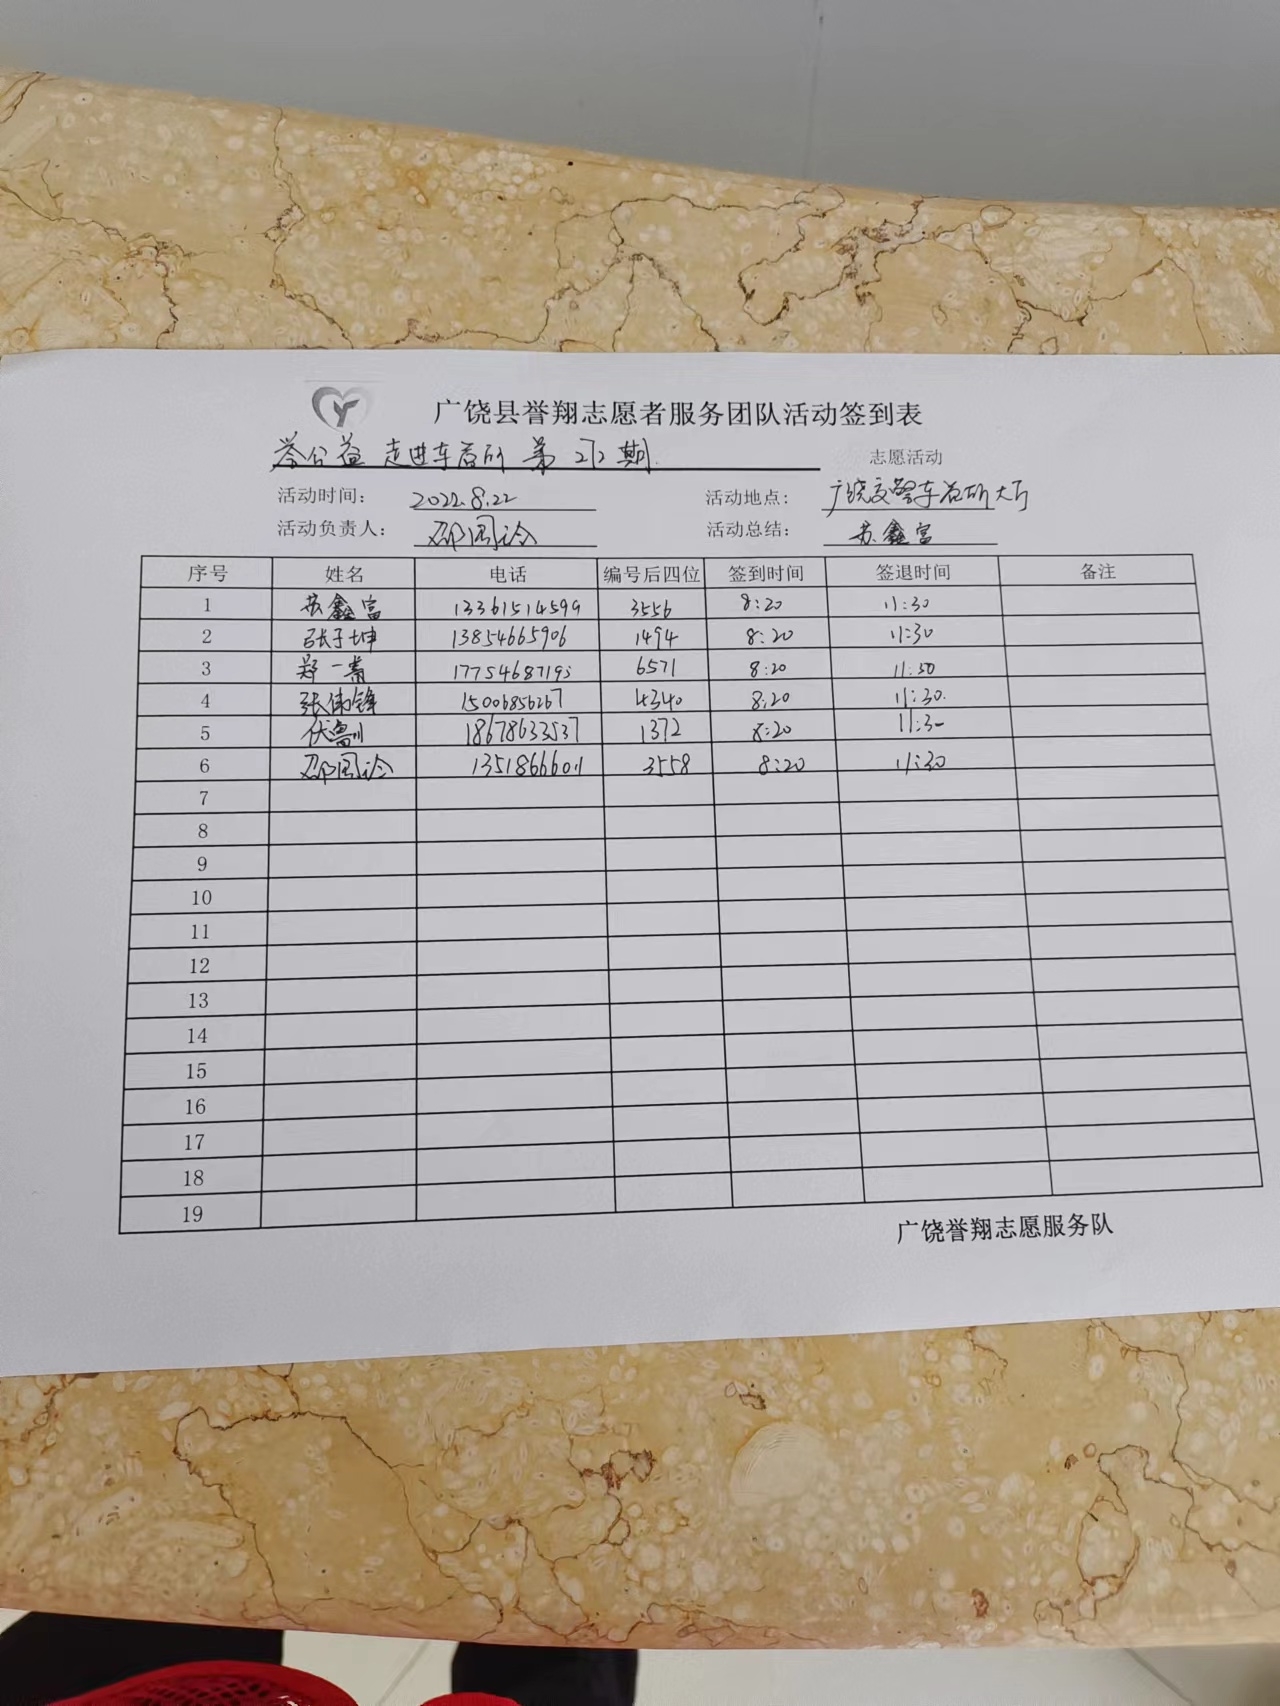 广饶县誉翔志愿者服务团队活动签到表
誉公益 走进车管所 第 272 期 志愿活动
活动时间: 2022.8.22 活动地点: 广饶交警车管所大厅
活动负责人: 活动总结: 苏鑫富
序号 姓名 电话 编号后四位 签到时间 签退时间 备注
1 苏鑫富 13361514599 3556 8:20 11:30
2 张子坤 13854665906 1494 8:20 11:30
3 郑一 17754687195 6571 8:20 11:30
4 张伟锋 15006856267 4340 8:20 11:30
5 伏 18678633537 1372 8:20 11:30
6 13518666011 3558 8:20 11:30
7
8
9
10
11
12
13
14
15
16
17
18
19
广饶誉翔志愿服务队